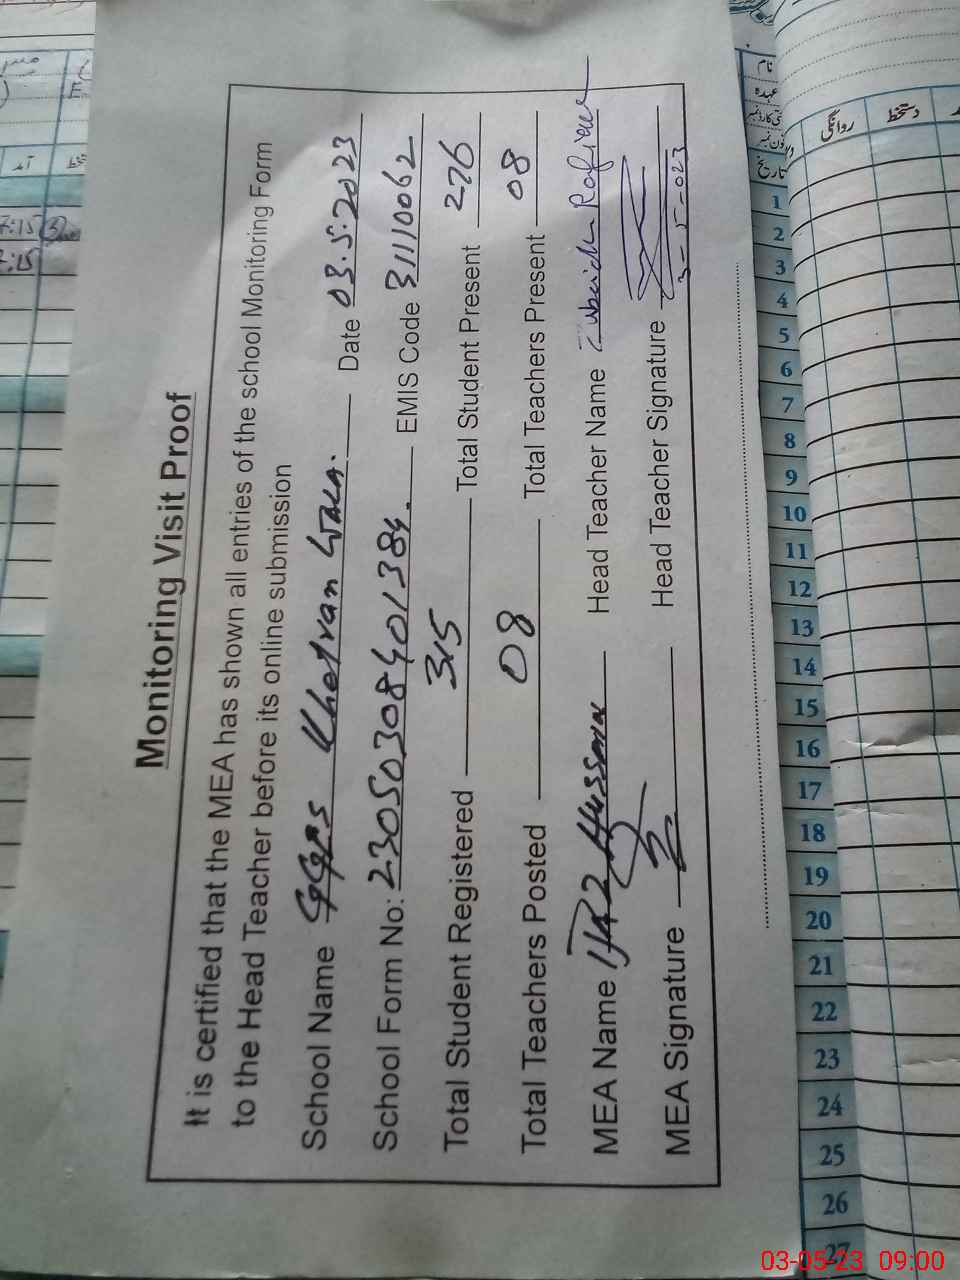 Monitoring Visit Proof
It is certified that the MEA has shown all entries of the school Monitoring Form
to the Head Teacher before its online submission
School Name GGPS Khetran Wala. Date 03.5.2023
School Form No: 23050308401384. EMIS Code 31110062
Total Student Registered 315 Total Student Present 276
Total Teachers Posted 08 Total Teachers Present 08
MEA Name Hussain Head Teacher Name Zubaida
MEA Signature Head Teacher Signature
3-5-023
نام
عہدہ
تاریخ
روانگی
دستخط
آمد
7:15
7:15
1
2
3
4
5
6
7
8
9
10
11
12
13
14
15
16
17
18
19
20
21
22
23
24
25
26
27
03-05-23 09:00